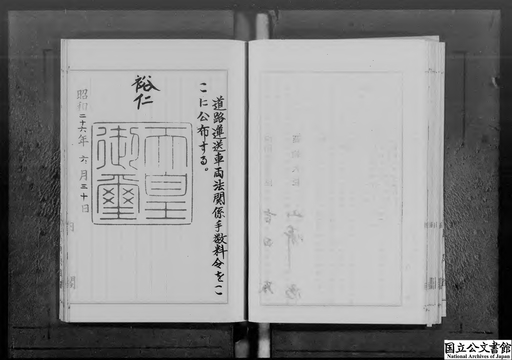 道路運送車両法関係手数料令をこ
こに公布する。
裕仁
天皇
御璽
昭和二十六年六月三十日
内閣
国立公文書館
National Archives of Japan